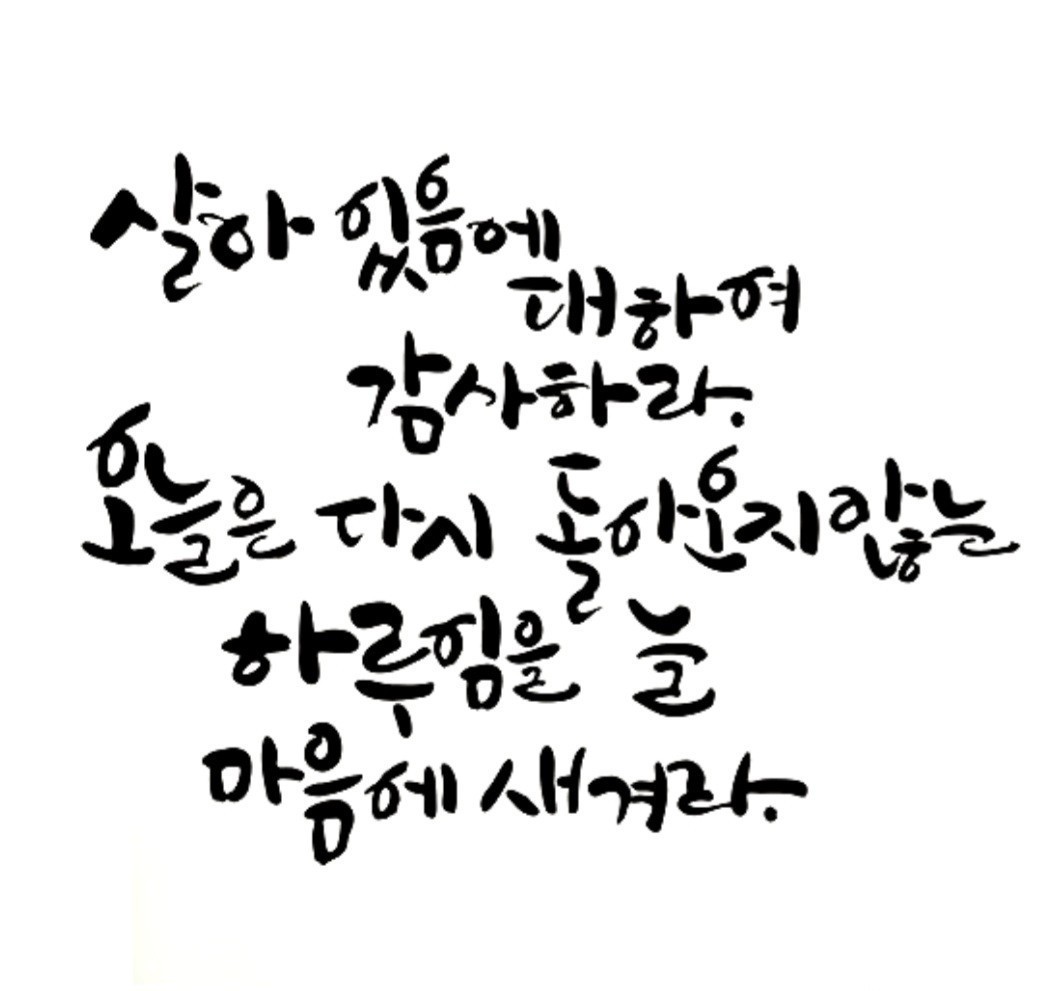 살아 있음에
대하여
감사하라.
오늘은 다시 돌아오지않는
하루임을 늘
마음에 새겨라.